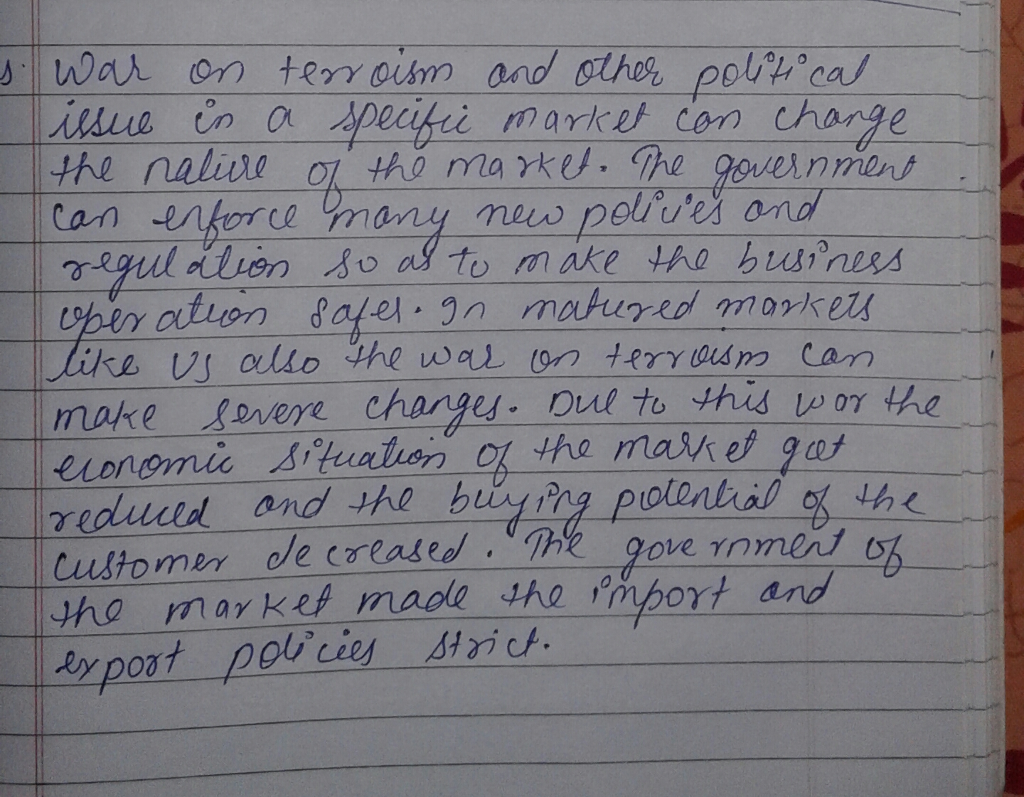 War on terroism and other political
issue in a specific market can change
the nature of the market. The government
can enforce many new policies and
regulation so as to make the business
operation safer. In matured markets
like US also the war on terroism can
make severe changes. Due to this war the
economic situation of the market got
reduced and the buying potential of the
customer decreased. The government of
the market made the import and
export policies strict.